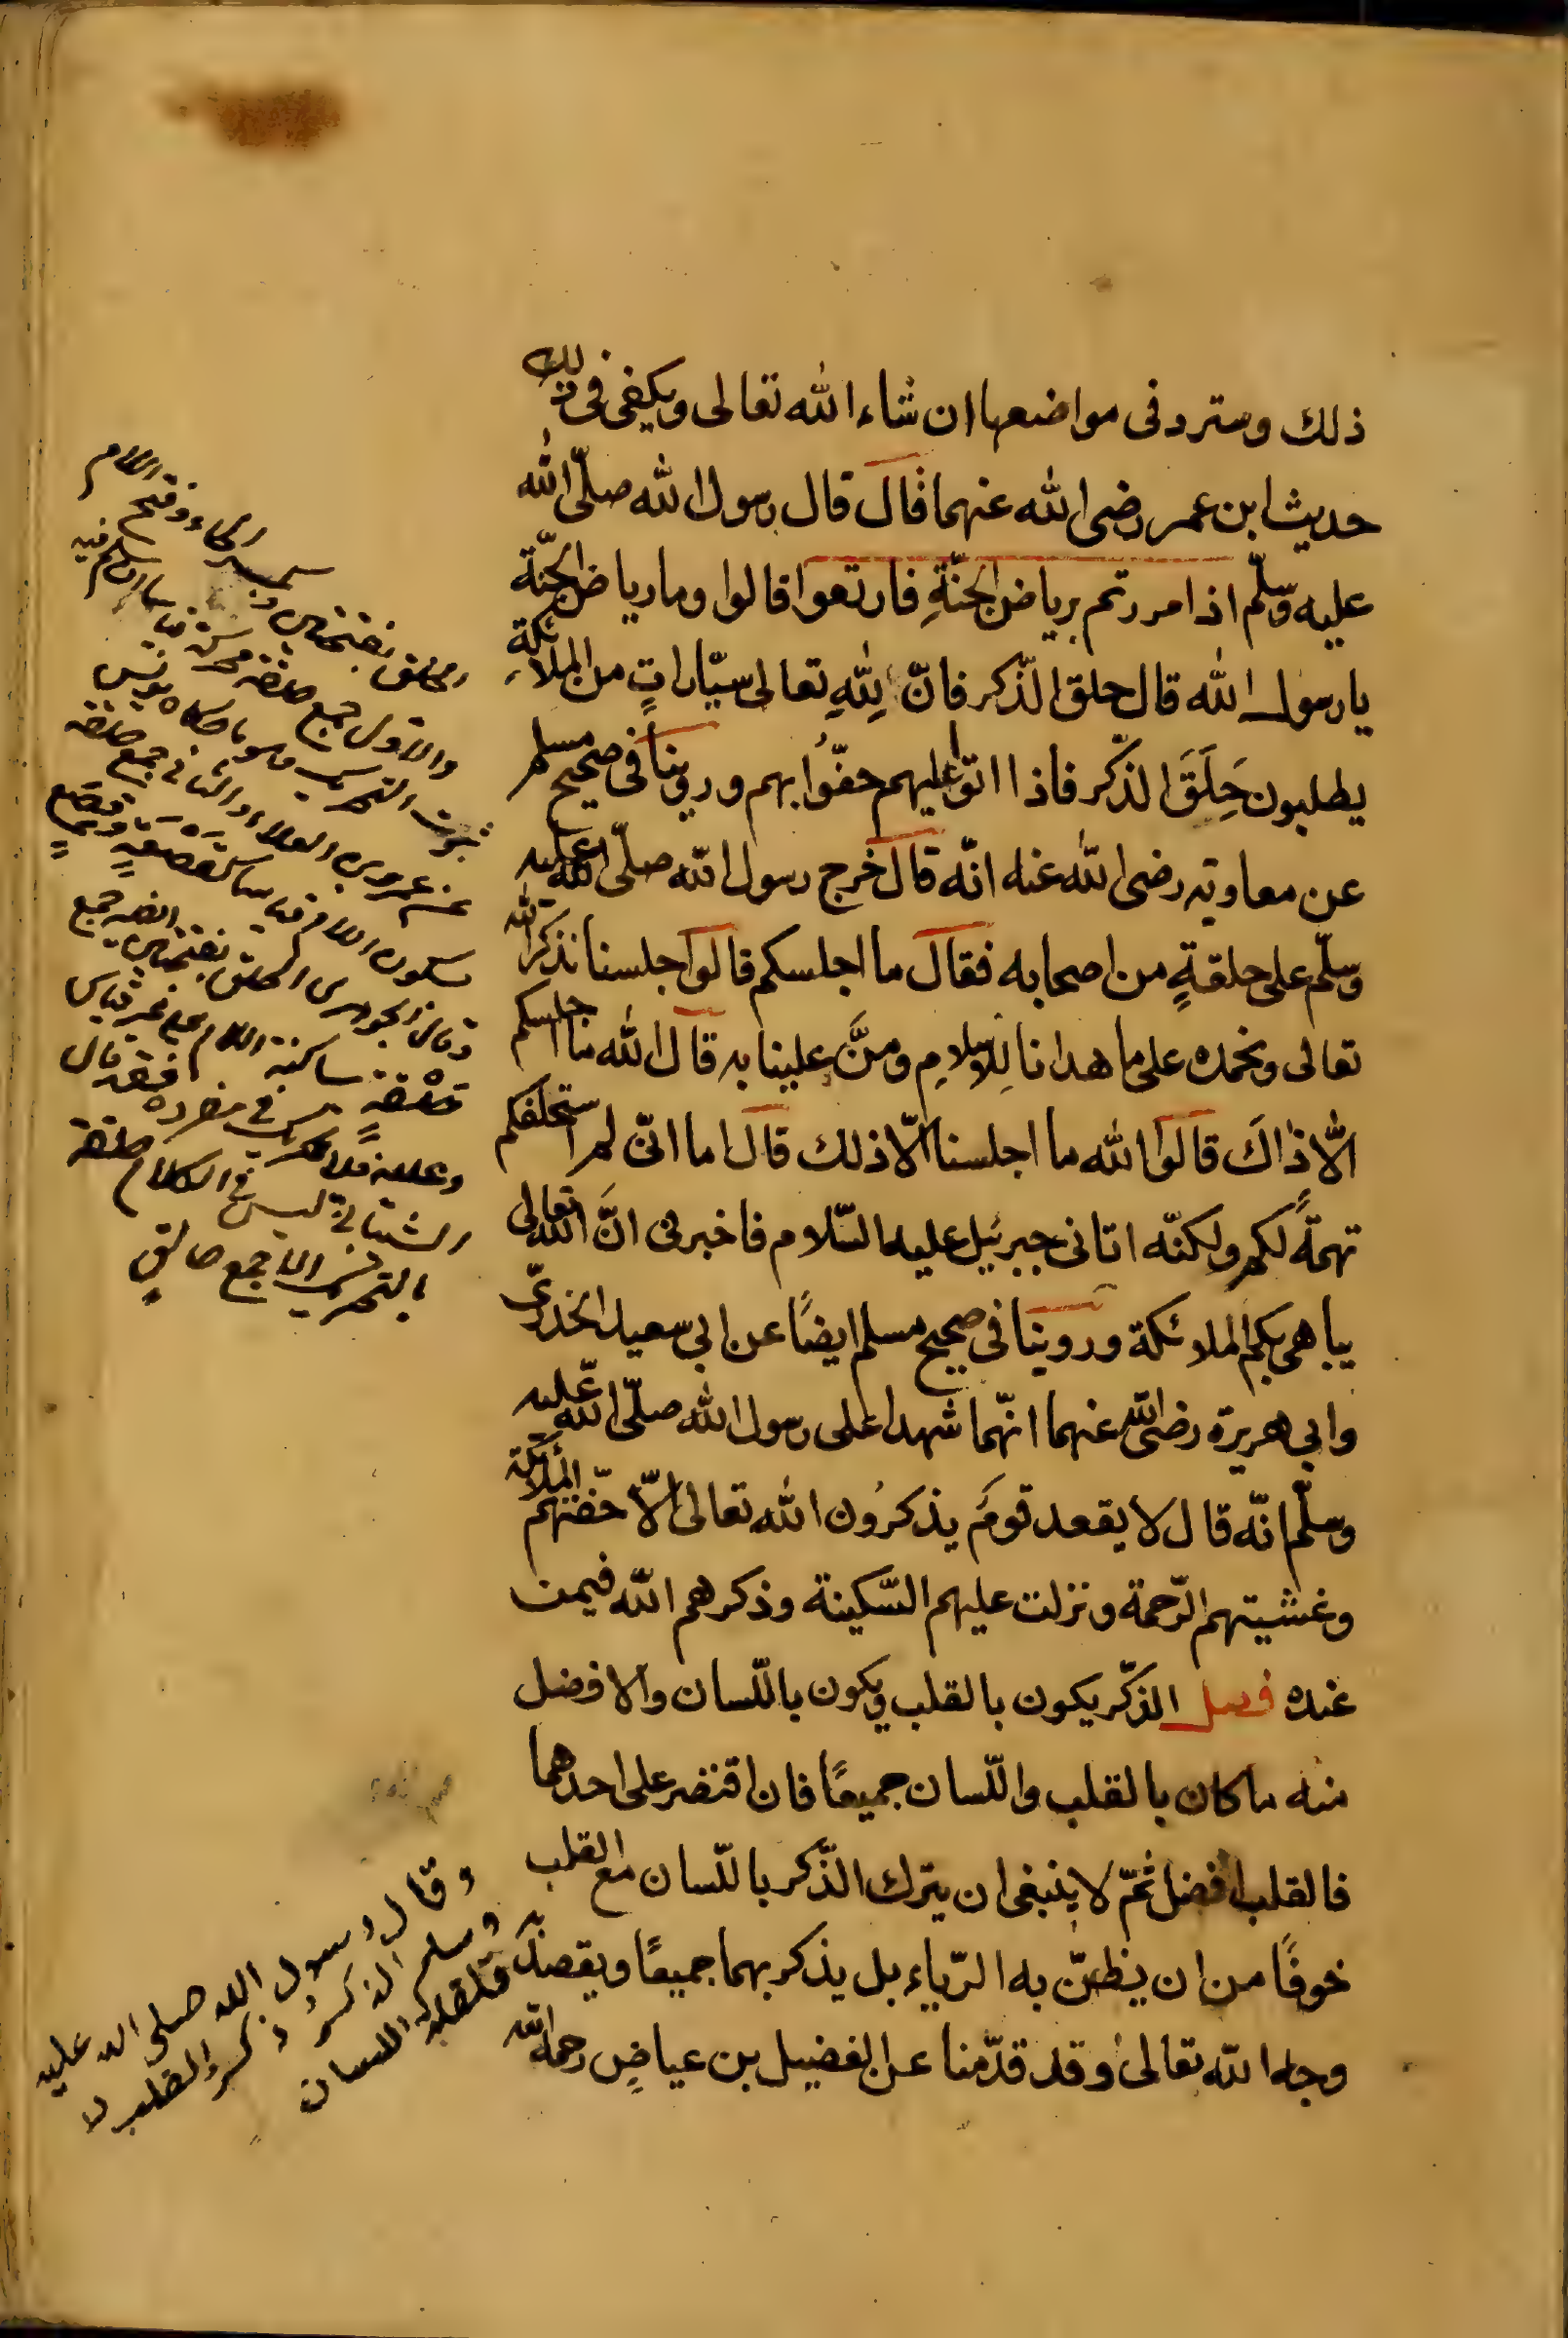 ذلك وسترد فى مواضعها ان شاء الله تعالى ويكفى فى ذلك
حديث ابن عمر رضى الله عنهما قال قال رسول الله صلّى الله
عليه وسلّم اذا مررتم برياض الجنّةِ فارتعوا قالوا وما رياض الجنّة
يا رسول الله قال حلق الذّكر فانّ لِلّهِ تعالى سيّاراتٍ من الملائكة
يطلبون حِلَقَ الذّكر فاذا اتوا عليهم حفّوا بهم وروينا فى صحيح مسلم
عن معاوية رضى الله عنه انّه قال خرج رسول الله صلّى الله عليه
وسلّم على حلقةٍ من اصحابه فقال ما اجلسكم قالوا جلسنا نذكر الله
تعالى ونحمده على ما هدانا لِلاسلامِ ومنَّ علينا به قال الله ما اجلسكم
الّا ذاكَ قالوا الله ما اجلسنا الّا ذلك قال اما انّى لم استحلفكم
تهمةً لكم ولكنّه اتانى جبرئيل عليه السّلام فاخبرنى انَّ الله تعالى
يباهى بكم الملائكة وروينا فى صحيح مسلم ايضًا عن ابي سعيد الخدريّ
وابي هريرة رضى الله عنهما انّهما شهدا على رسول الله صلّى الله عليه
وسلّم انّه قال لا يقعد قوم يذكرُون الله تعالى الّا حفّتهم الملائكة
وغشيتهم الرّحمة ونزلت عليهم السّكينة وذكرهم الله فيمن
عنده فصل الذّكر يكون بالقلب ويكون باللّسان والافضل
منه ما كان بالقلب واللّسان جميعًا فان اقتصر على احدهما
فالقلب افضل ثمّ لا ينبغى ان يترك الذّكر باللّسان مع القلب
خوفًا من ان يظنّ به الرّياء بل يذكر بهما جميعًا ويقصد به
وجه الله تعالى وقد قدّمنا عن الفضيل بن عياضٍ رحمه الله
بفتحتين وبكسر الحاء وفتح اللام
والاول جمع حلقة
عمرو بن العلاء والثانى جمع حلقة
بسكون اللام
وقال الجوهرى الحلق بفتحتين
ساكنة اللام على غير قياس
الشيبانى ليس فى الكلام حلقة
بالتحريك الا جمع حالقٍ
وقال رسول الله صلى الله عليه
وسلم الذكر ذكر القلب لا
اللسان